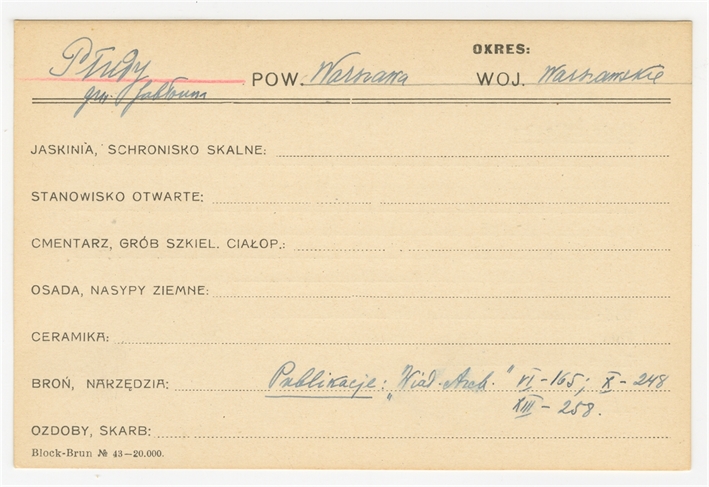 OKRES:
Płudy POW. Warszawa WOJ. Warszawskie
gm. Jabłonna
JASKINIA, SCHRONISKO SKALNE:
STANOWISKO OTWARTE:
CMENTARZ, GRÓB SZKIEL. CIAŁOP.:
OSADA, NASYPY ZIEMNE:
CERAMIKA:
BROŃ, NARZĘDZIA: Publikacje: "Wiad. Arch." VI - 165; X - 248
XIII - 258.
OZDOBY, SKARB:
Block-Brun № 43—20.000.